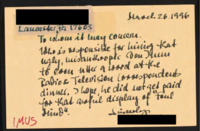 March 26, 1996
Lancaster, PA 17603
To whom it may concern.
Who is responsible for hiring that
ugly, misanthropic Don Imus
to even utter a word at the
Radio & Television Correspondents
dinner. I hope he did not get paid
for that awful display of "foul
Sincerely
IMUS